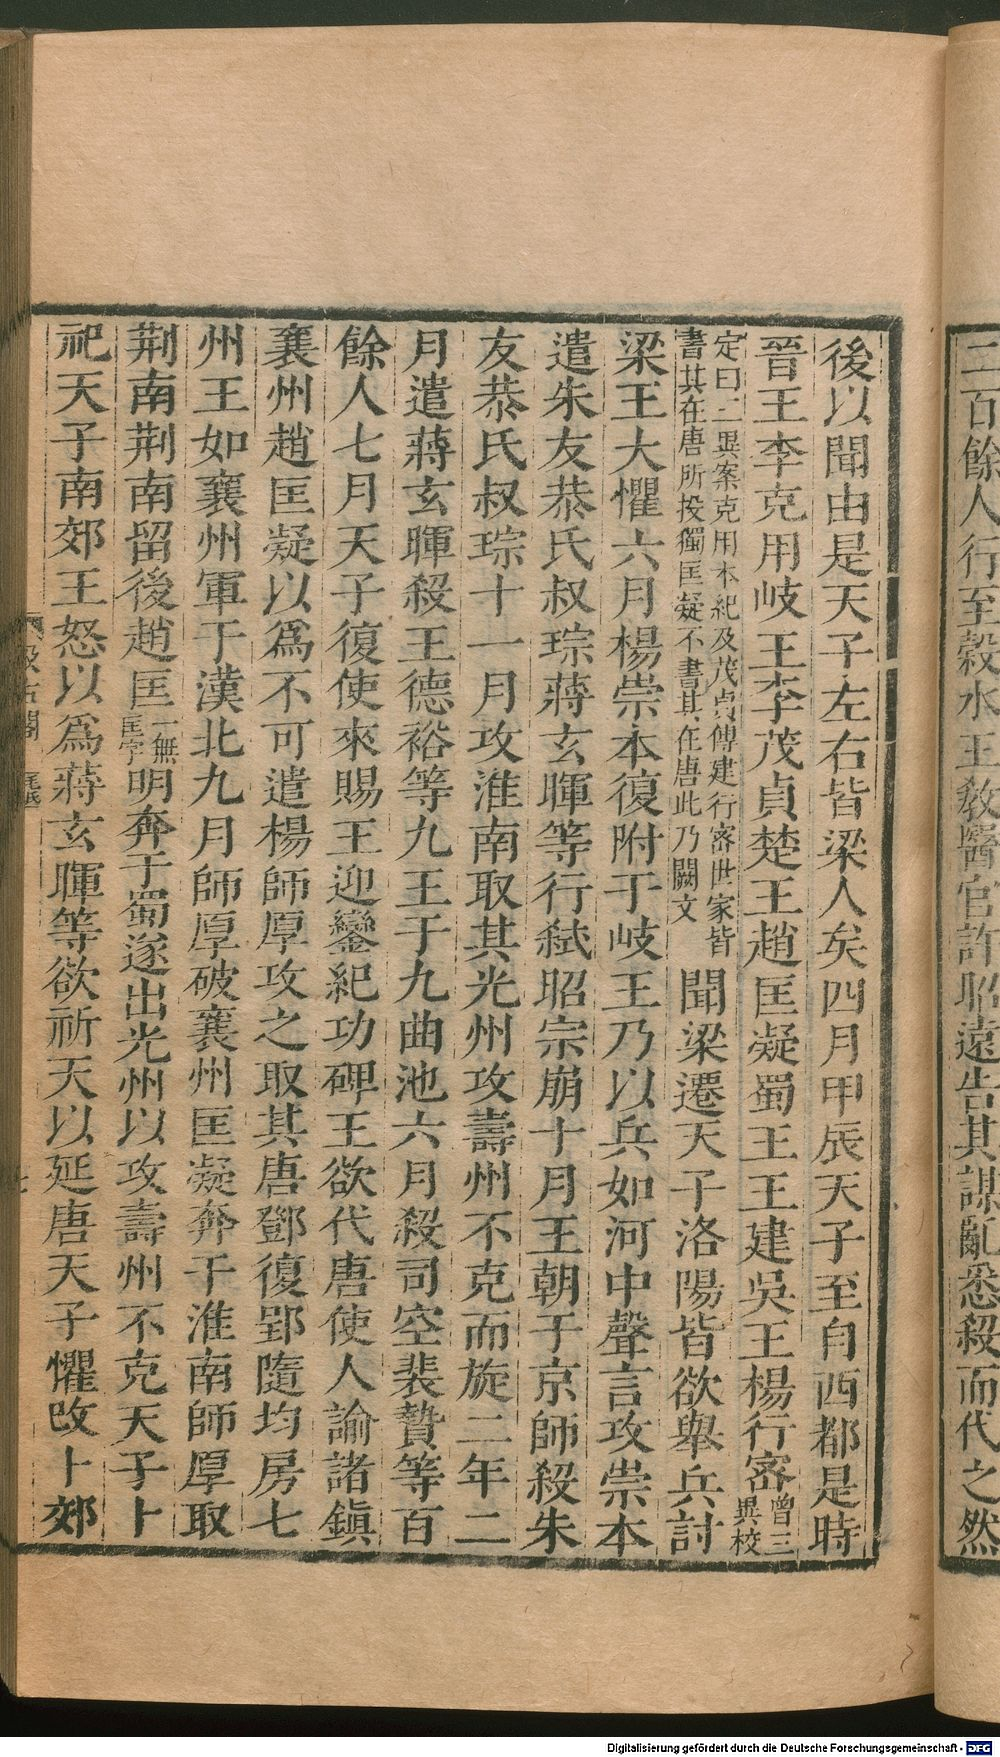 二百餘人行至榖水王敎醫官許昭遠告其謀亂悉殺而代之然
後以聞由是天子左右皆梁人矣四月甲辰天子至自西都是時
晉王李克用岐王李茂貞楚王趙匡凝蜀王王建吳王楊行密曾三異校
定曰三異案克用本紀及茂貞傳建行密世家皆書其在唐所投獨匡凝不書其在唐此乃闕文聞梁遷天子洛陽皆欲舉兵討
梁王大懼六月楊崇本復附于岐王乃以兵如河中聲言攻崇本
遣朱友恭氏叔琮蔣玄暉等行弒昭宗崩十月王朝于京師殺朱
友恭氏叔琮十一月攻淮南取其光州攻壽州不克而旋二年二
月遣蔣玄暉殺王德裕等九王于九曲池六月殺司空裴贄等百
餘人七月天子復使來賜王迎鑾紀功碑王欲代唐使人諭諸鎮
襄州趙匡凝以爲不可遣楊師厚攻之取其唐鄧復郢隨均房七
州王如襄州軍于漢北九月師厚破襄州匡凝奔于淮南師厚取
荆南荆南留後趙匡一無匡字明奔于蜀遂出光州以攻壽州不克天子卜
祀天子南郊王怒以爲蔣玄暉等欲祈天以延唐天子懼改卜郊
汲古閣
Digitalisierung gefördert durch die Deutsche Forschungsgemeinschaft - DFG